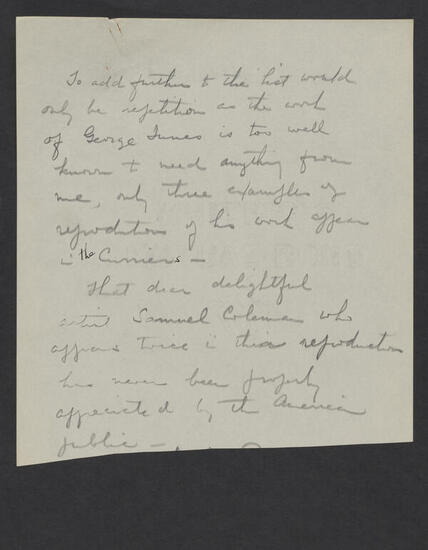 To add further to the list would
only be repetition as the work
of George Innes is too well
known to need anything from
me, only three examples of
reproductions of his work appear
in the Curriers —
That dear delightful
artist Samuel Coleman who
appears twice in this reproduction
has never been properly
appreciated by the American
public —